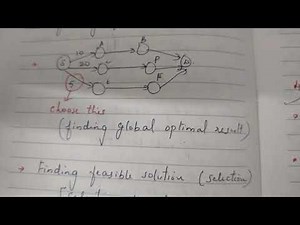 A B
10
S 20 C P D
5 E
choose this
(finding global optimal result)
→ Finding feasible solution (selection)